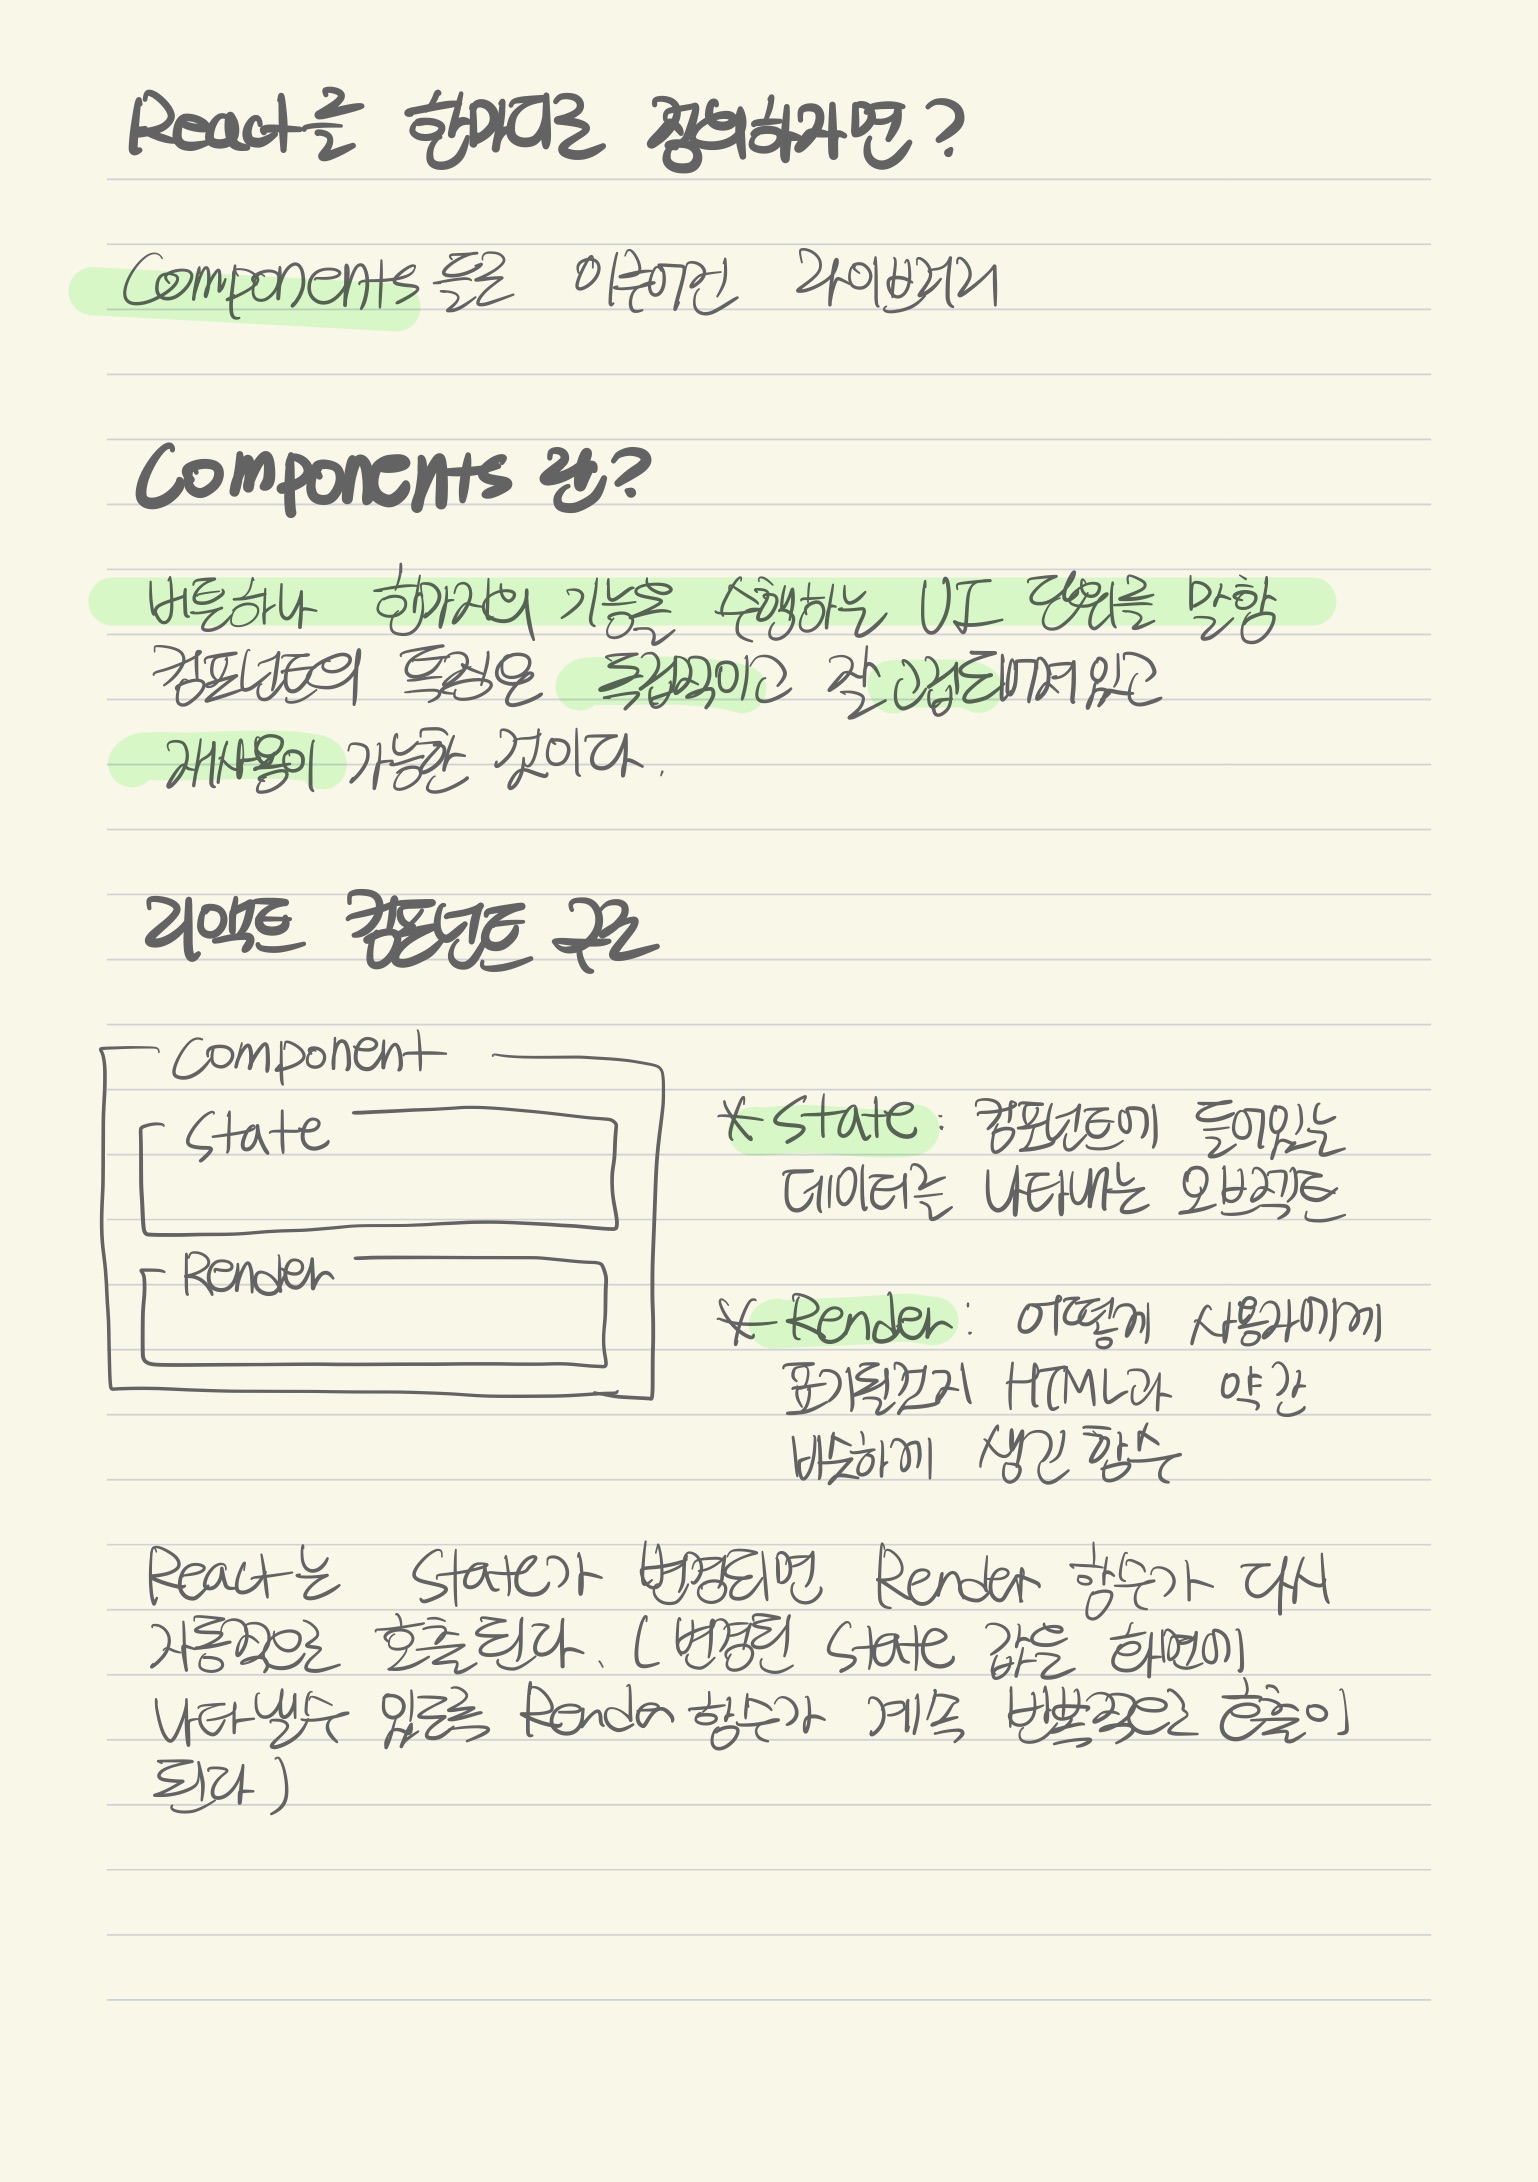 React를 한마디로 정의하라면?
Components들로 이루어진 라이브러리
Components 란?
버튼하나 한가지의 기능을 수행하는 UI 단위를 말함
컴포넌트의 특징은 독립적이고 잘 고립되어져있고
재사용이 가능한 것이다.
리액트 컴포넌트 구조
Component
State
Render
* State : 컴포넌트에 들어있는
데이터를 나타내는 오브젝트
* Render : 어떻게 사용자에게
표기될건지 HTML과 약간
비슷하게 생긴 함수
React는 State가 변경되면 Render 함수가 다시
자동적으로 호출된다. (변경된 State 값을 화면에
나타낼수 있도록 Render 함수가 계속 반복적으로 호출이
된다)